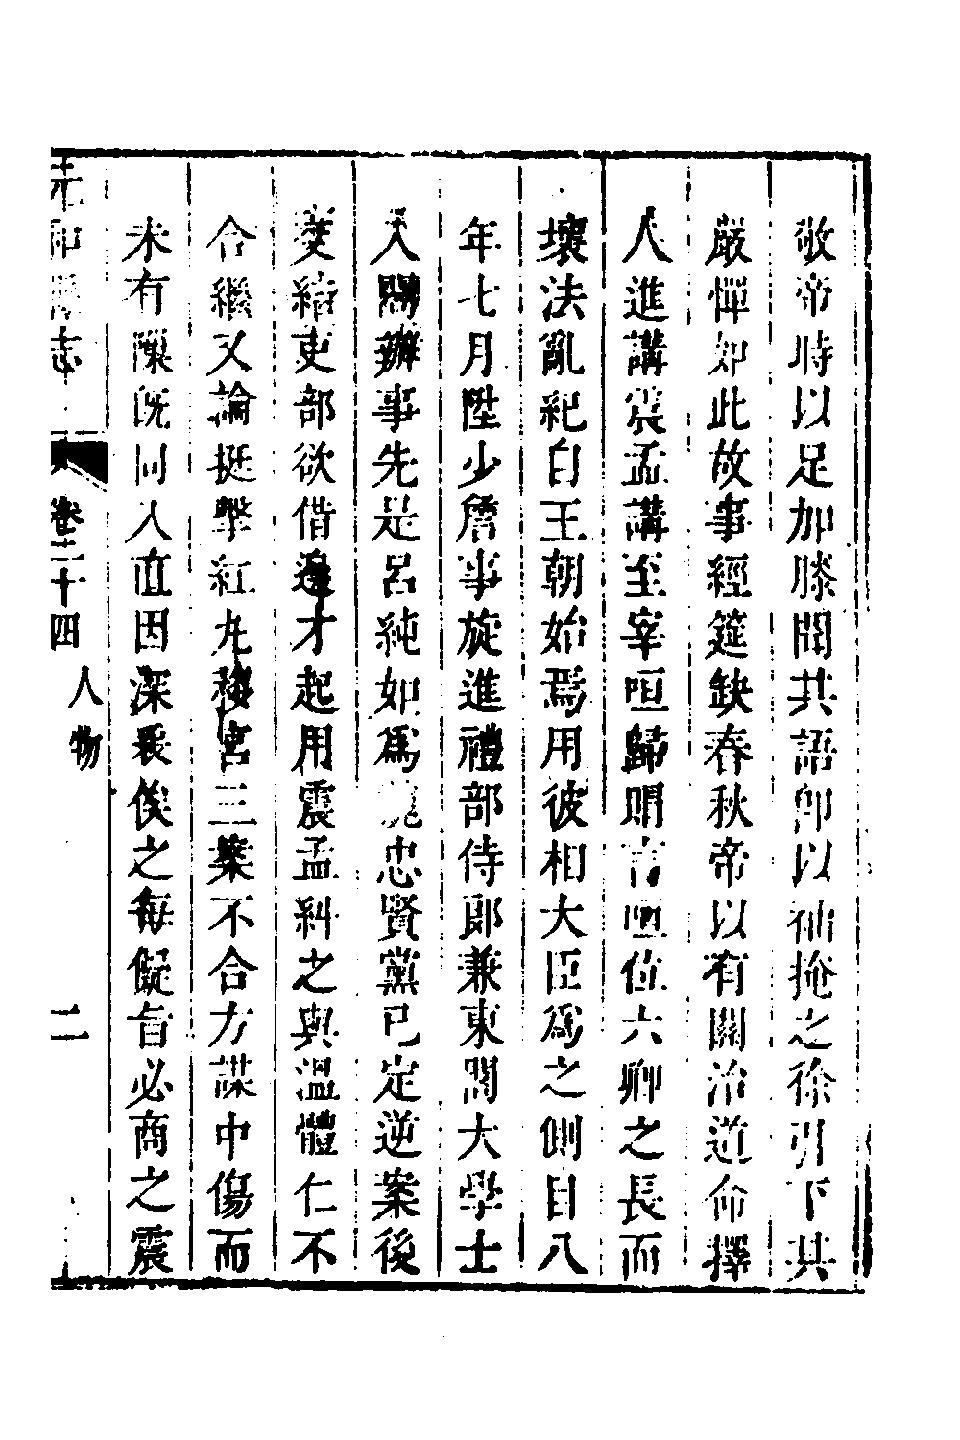 敬帝時以足加膝間共語卽以袖掩之徐引下其
嚴憚如此故事經筵缺春秋帝以有關治道命擇
人進講震孟講至宰咺歸賵言塚位六卿之長而
壞法亂紀自王朝始焉用彼相大臣爲之側目八
年七月陞少詹事旋進禮部侍郎兼東閣大學士
入閣辦事先是呂純如爲魏忠賢黨已定逆案後
夤緣吏部欲借邊才起用震孟糾之與溫體仁不
合繼又論挺擊紅丸移宮三案不合方謀中傷而
未有隙旣同入直因深畏倰之每儗旨必商之震
元和縣志
卷二十四
人物
二